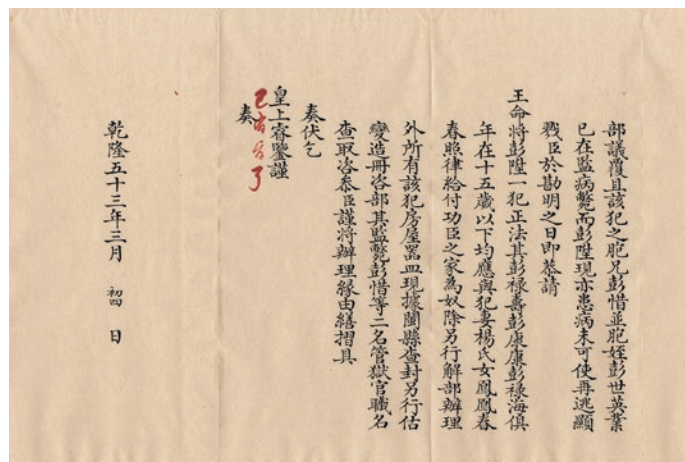 部議覆且該犯之胞兄彭惜並胞姪彭世英業
已在監病斃而彭陞現亦患病未可使再逃顯
戮臣於勘明之日即恭請
王命將彭陞一犯正法其彭祿壽彭康康彭祿海俱
年在十五歲以下均應與犯妻楊氏女鳳鳳春
春照律給付功臣之家為奴除另行解部辦理
外所有該犯房屋器皿現據閩縣查封另行估
變造冊咨部其監斃彭惜等二名管獄官職名
查取咨叅臣謹將辦理緣由繕摺具
奏伏乞
皇上睿鑒謹
奏
已有旨了
乾隆五十三年三月 初四 日